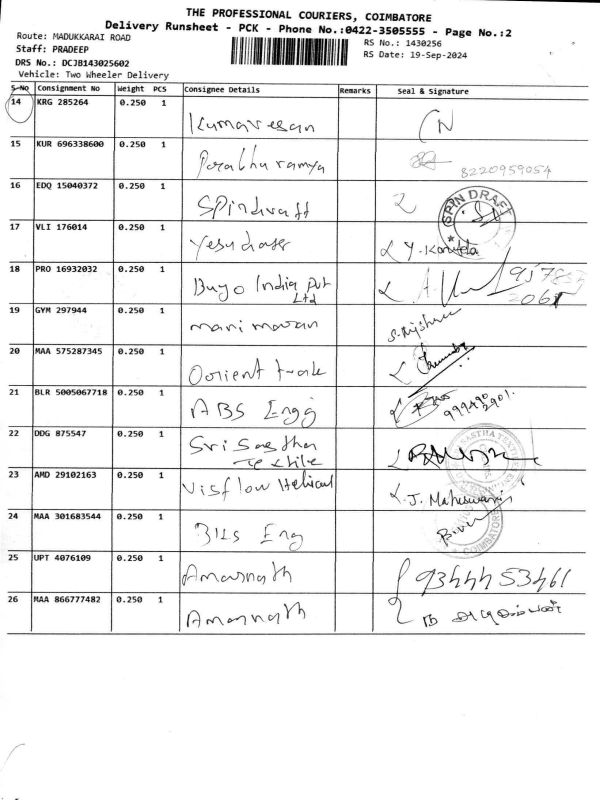 THE PROFESSIONAL COURIERS, COIMBATORE
Delivery Runsheet - PCK - Phone No.:0422-3505555 - Page No.:2
Route: MADUKKARAI ROAD
RS No.: 1430256
Staff: PRADEEP
RS Date: 19-Sep-2024
DRS No.: DCJB143025602
Vehicle: Two Wheeler Delivery
S-No Consignment No Weight PCS Consignee Details Remarks Seal & Signature
14 KRG 285264 0.250 1 Kumaresan
15 KUR 696338600 0.250 1 8220959054
16 EDQ 15040372 0.250 1 Spindraft SPIN DRAFT
17 VLI 176014 0.250 1 Yesudhass
18 PRO 16932032 0.250 1 Buyo India Pvt
Ltd
19 GYM 297944 0.250 1 manimaran
20 MAA 575287345 0.250 1
21 BLR 5005067718 0.250 1 ABS Engg
22 DDG 875547 0.250 1 Sri Sastha
Textile
23 AMD 29102163 0.250 1 Visflow Helical J. Maheswari
24 MAA 301683544 0.250 1 Eng COIMBATORE
25 UPT 4076109 0.250 1 Amarnath 9344453461
26 MAA 866777482 0.250 1 Amarnath